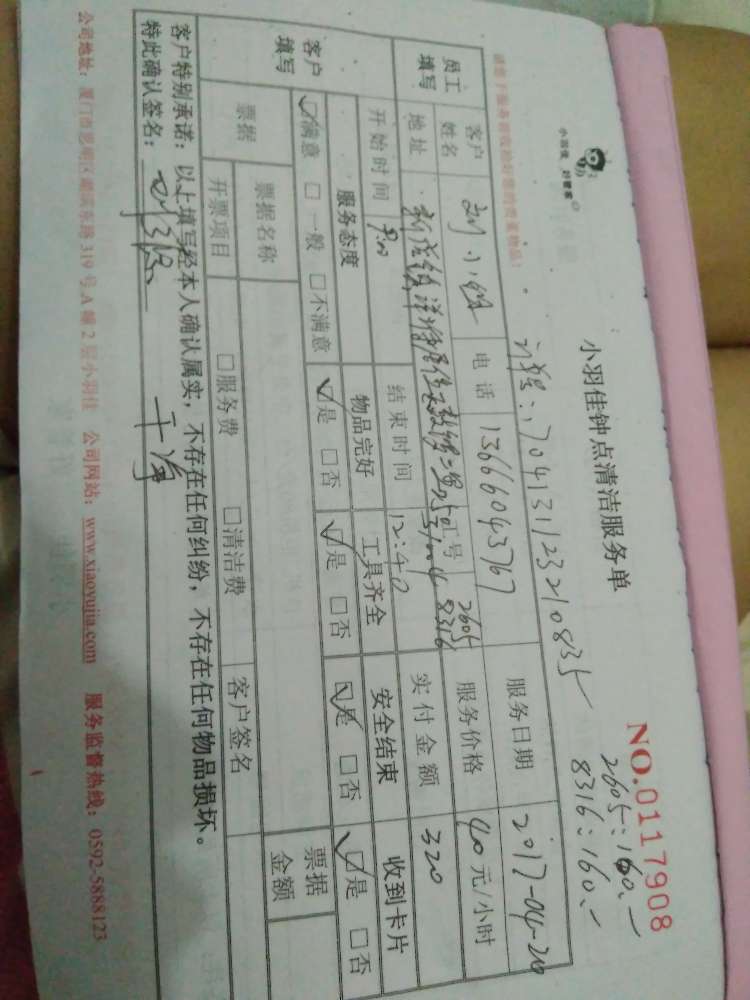 小羽佳 好管家
小羽佳钟点清洁服务单
NO.0117908
2605:160.-
8316:160.-
请您于服务前收拾好您的贵重物品!
17041311232210835
员工填写
客户姓名
电话 13666043767
服务日期 2017-04-20
地址
工号 2605 8316
服务价格 40元/小时
开始时间
结束时间 12:40
实付金额 320
客户填写
服务态度 物品完好 工具齐全 安全结束 收到卡片
☑满意 □一般 □不满意 ☑是 □否 ☑是 □否 ☑是 □否 ☑是 □否
票据 票据名称 票据金额
开票项目 □服务费 □清洁费 客户签名
客户特别承诺:以上填写经本人确认属实,不存在任何纠纷,不存在任何物品损坏。
特此确认签名:
公司地址:厦门市思明区湖滨东路319号A幢2层小羽佳 公司网站:www.xiaoyujia.com 服务监督热线:0592-5888123